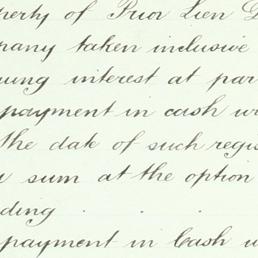 perty of Prior Lien D
pany taken inclusive
uing interest at par
payment in cash w
the date of such regis
sum at the option
ding . . .
payment in Cash w